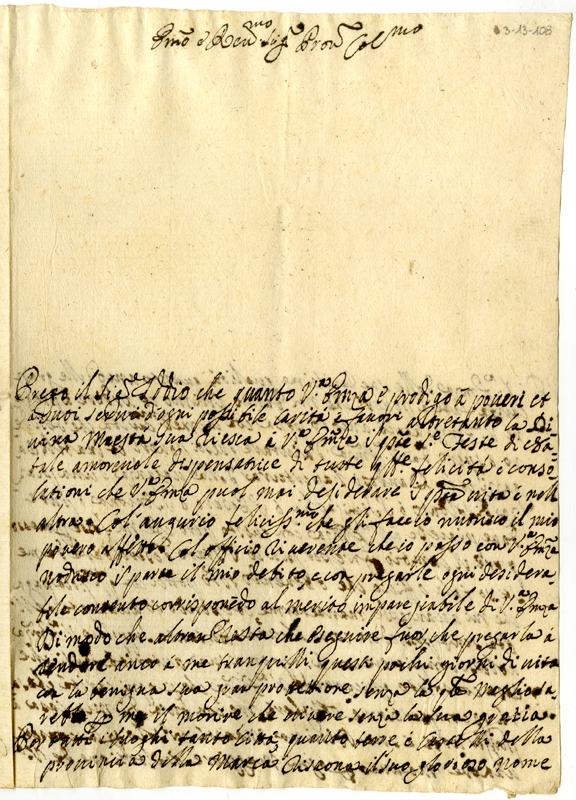 3-13-108
Emo è Reumo Sigr Pron Colmo
Prego il Sigr Iddio che quanto V.a Emza è prodigo à poueri et
a suoi serui d'ogni possibile Carità è fauori altretanto la Di
uina Maestà sua riesca à V.a Emza i pnti S.te Feste di
tale amoreuole dispensatrice di tutte felicità è conso
lationi che V.a Emza puol mai desiderare i pnte uita è nell
altra. Col augurio felicissmo che gli faccio nutrisco il mio
pouero affetto. Col officio riuerente che io passo con V.a Emza
sodisfo i parte il mio debito e con pregarle ogni desidera
bile contento corrispondo al merito impareggiabile di V.a Emza
Di modo che altro resta che seguire fuor che pregarla à
rendere anco à me tranquilli questi pochi giorni di uita
co la benigna sua protettione senza la qle meglio sa
rebbe p me il morire che uiuere senza la sua gratia.
Per tutti i luoghi tanto Città, quanto terre è Castelli della
prouincia della Marca risuona il suo glorioso nome